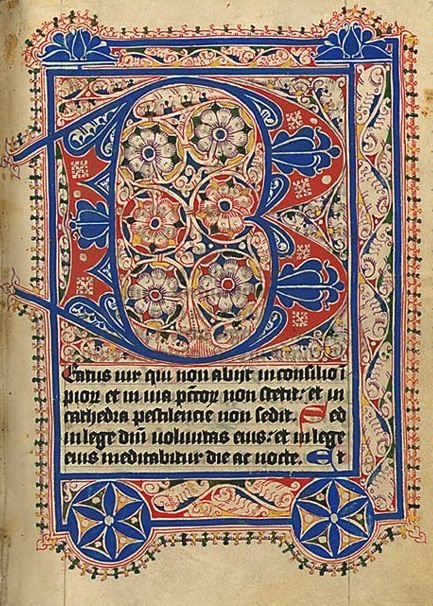 B
Eatus uir qui non abijt in consilio ī
pioꝝ et in uia pctoꝝ non stetit: et in
cathedra pestilencie non sedit. Sed
in lege dm̄ uoluntas eius: et in lege
eius meditabitur die ac nocte. Et